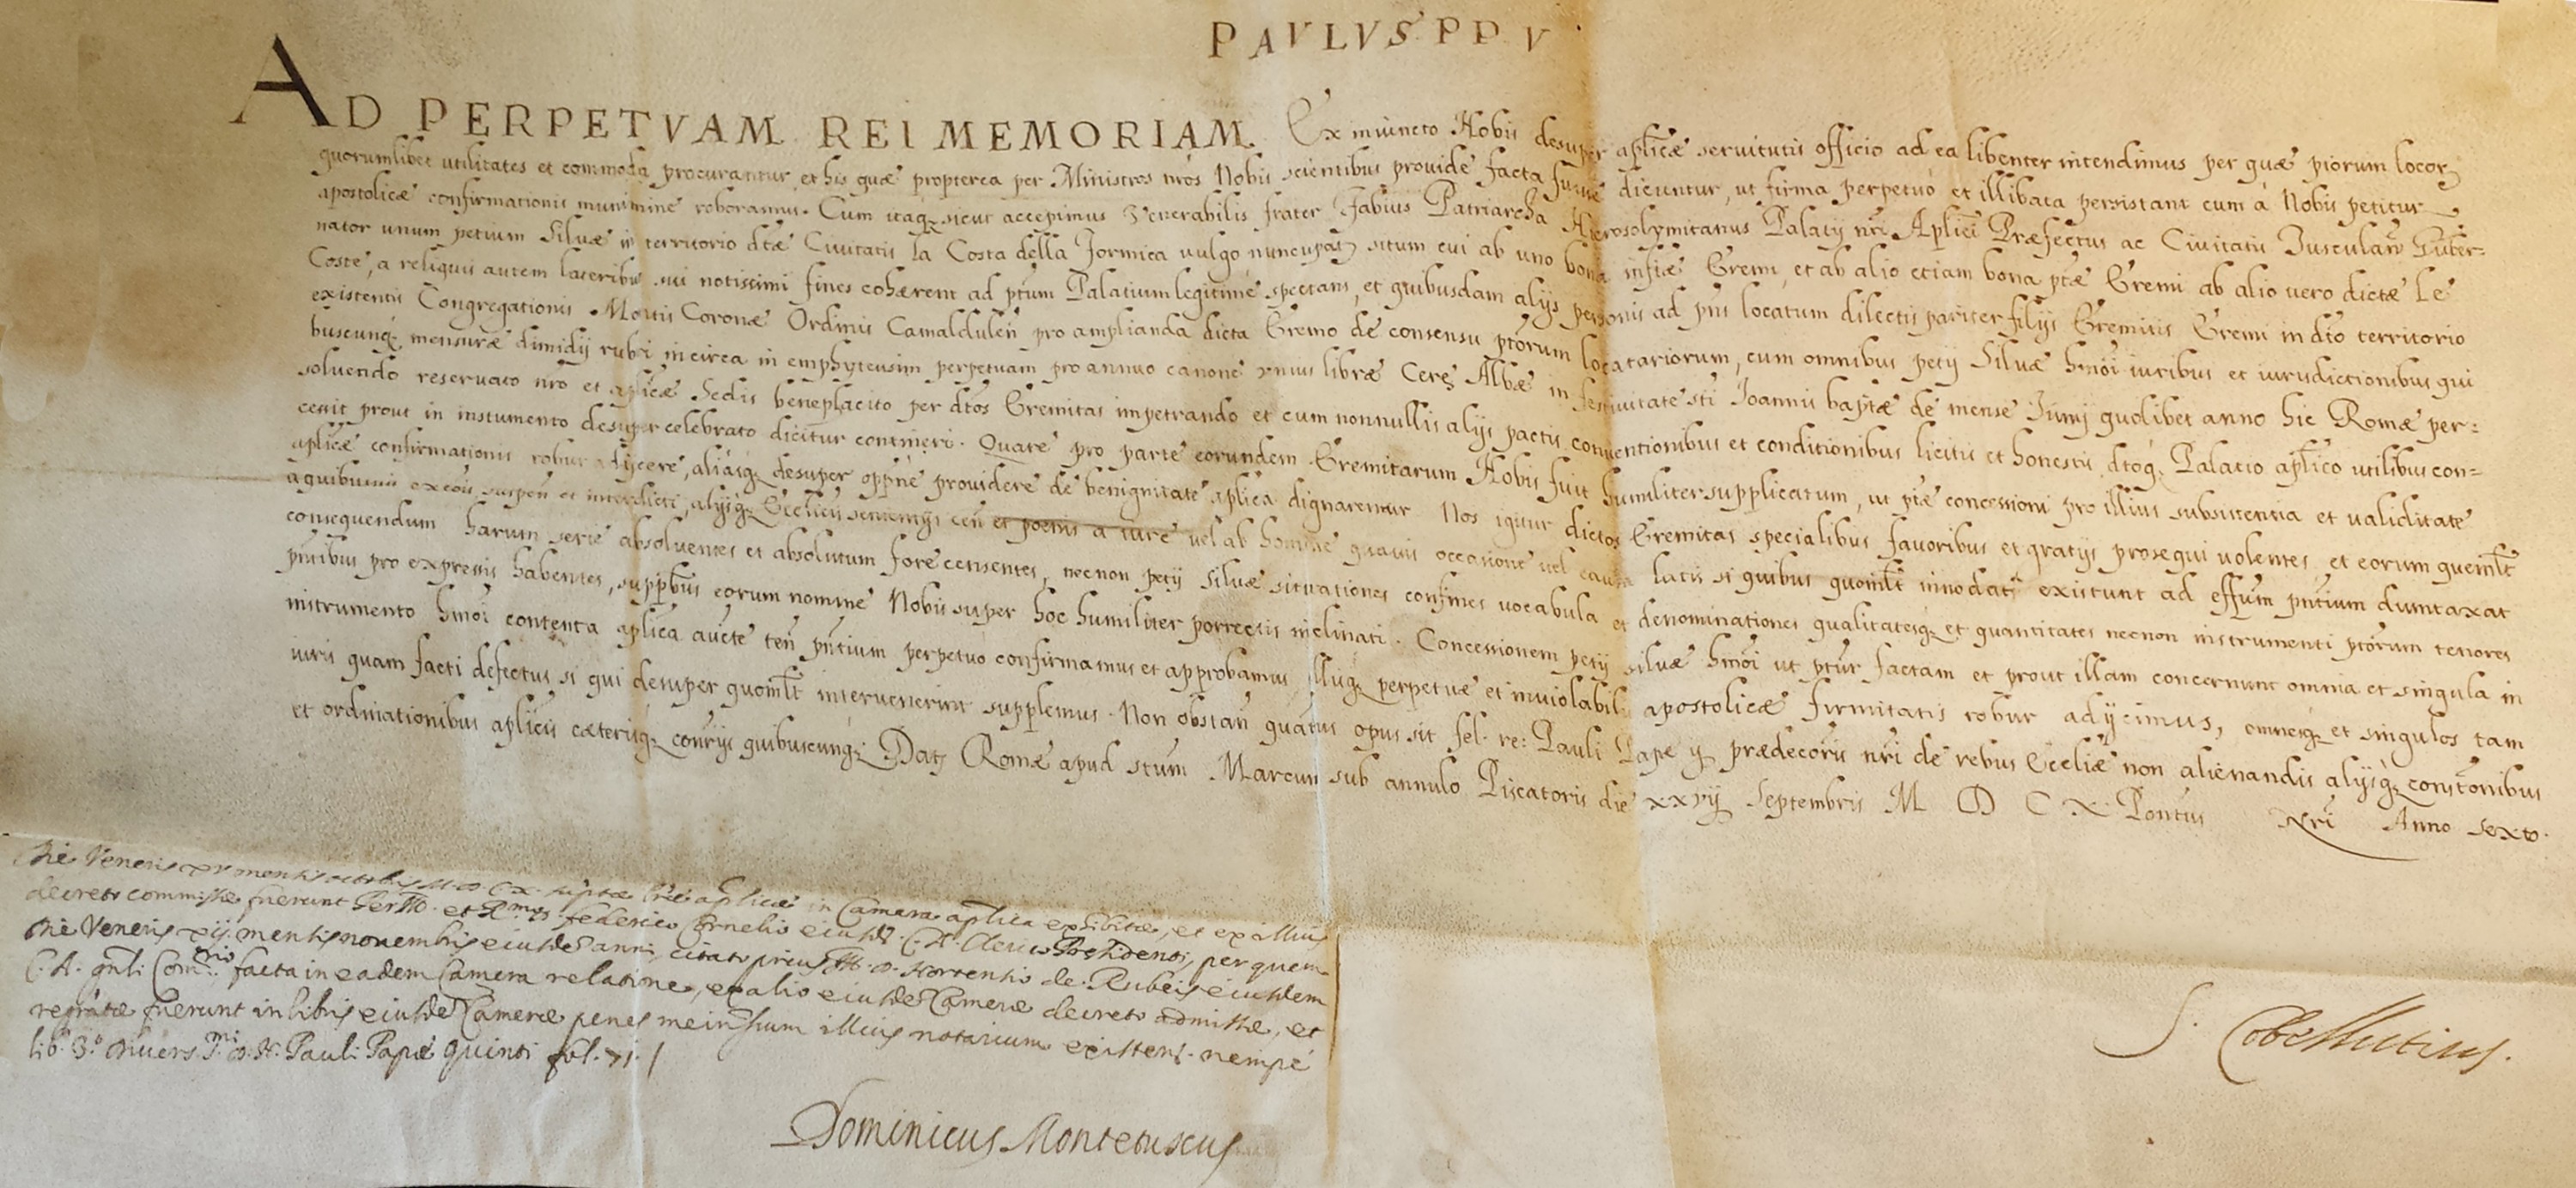 PAVLVS PP V
AD PERPETVAM REI MEMORIAM. Ex iniuncto Nobis desuper aplicæ seruitutis officio ad ea libenter intendimus per quæ piorum locor
quorumlibet utilitates et commoda procurantur, et his quæ propterea per Ministros nrós Nobis scientibus prouide facta fuisse dicuntur, ut firma perpetuó et illibata persistant cum à Nobis petitur
apostolicæ confirmationis munimine roboramus. Cum itaq; sicut accepimus Venerabilis frater Fabius Patriarcha Hierosolymitanus Palatij nri Aplici Præfectus ac Ciuitatis Tusculan Guber=
nator unum petium Siluæ in territorio dtæ Ciuitatis la Costa della Formica uulgo nuncupat situm cui ab uno bona infræ Eremi, et ab alio etiam bona ptæ Eremi ab alio uero dictæ Le
Coste, a reliquis autem lateribus sui notissimi fines cohærent ad ptum Palatium legitimé spectans, et quibusdam alijs personis ad pns locatum dilectis pariter filijs Eremitis Eremi in dto territorio
existentis Congregationis Montis Coronæ Ordinis Camaldulen pro amplianda dicta Eremo de consensu ptorum locatariorum, cum omnibus petij Siluæ hmoi iuribus et iurisdictionibus qui
buscunq; mensuræ dimidij rubri in circa in emphyteusim perpetuam pro annuo canone unius libræ Ceræ Albæ in festiuitate sti Joannis baptæ de mense Junij quolibet anno hic Romæ per=
soluendo reseruato nro et aplicæ Sedis beneplacito per dtos Eremitas impetrando et cum nonnullis alijs pactis conuentionibus et conditionibus licitis et honestis dtoq; Palatio aplico utilibus con=
cessit prout in instumento desuper celebrato dicitur contineri. Quare pro parte eorundem Eremitarum Nobis fuit humiliter supplicatum, ut ptæ concessioni pro illius subsistentia et validitate
aplicæ confirmationis robur adijcere, aliásq; desuper oppnè prouidere de benignitate aplica dignaremur. Nos igitur dictos Eremitas specialibus fauoribus et gratijs prosequi uolentes, et eorum quemlt
a quibusuis excõis, suspen et interdicti, alijsq; Ecclicis sententijs cen et poenis a iure vel ab homine quauis occasione vel causa latis si quibus quomlt innodati existunt ad effum pntium dumtaxat
consequendum harum serie absoluentes et absolutum fore censentes, necnon petij Siluæ situationes confines uocabula et denominationes qualitatesq; et quantitates necnon instrumenti ptorum tenores
pntibus pro expressis habentes, supplbus eorum nomine Nobis super hoc humiliter porrectis inclinati. Concessionem petij siluæ hmoi ut ptur factam et prout illam concernunt omnia et singula in
instrumento hmoi contenta aplica aucte ten pntium perpetuó confirmamus et approbamus, illiq; perpetuæ et inuiolabilis apostolicæ firmitatis robur adijcimus, omnesq; et singulos tam
iuris quam facti defectus si qui desuper quomlt interuenerint supplemus. Non obstan quatus opus sit fel. re: Pauli Papæ ij prædecoris nri de rebus Eccliæ non alienandis alijsq; constonibus
et ordinationibus aplicis cæterisq; contrijs quibuscunq; Dat Romæ apud stum Marcum sub annulo Piscatoris die xxvij Septembris M D C X. Pontus Nri Anno Sexto.
Die Veneris xv mensis octobris M D C X. suptæ lræ aplicæ in Camera aplica exhibitæ, et ex illius
decreto commissæ fuerunt Per Ill. et R.mo D. Federico Cornelio eiusd. C. A. Clerico Præsidenti, per quem
Die Veneris xij. mensis nouembris eiusde anni, citato prius Ill. D. Hortensio de Rubeis eiusdem
C. A. gnli Com.rio facta in eadem Camera relatione, ex alio eiusde Cameræ decreto admissæ, et
regratæ fuerunt in libris eiusde Cameræ penes me infrum illius notarium existen. nempé
lib.º 3.º diuers. S.mi D. N. Pauli Papæ quinti fol. 71.
S. Cobellutius.
Dominicus Montetuscus